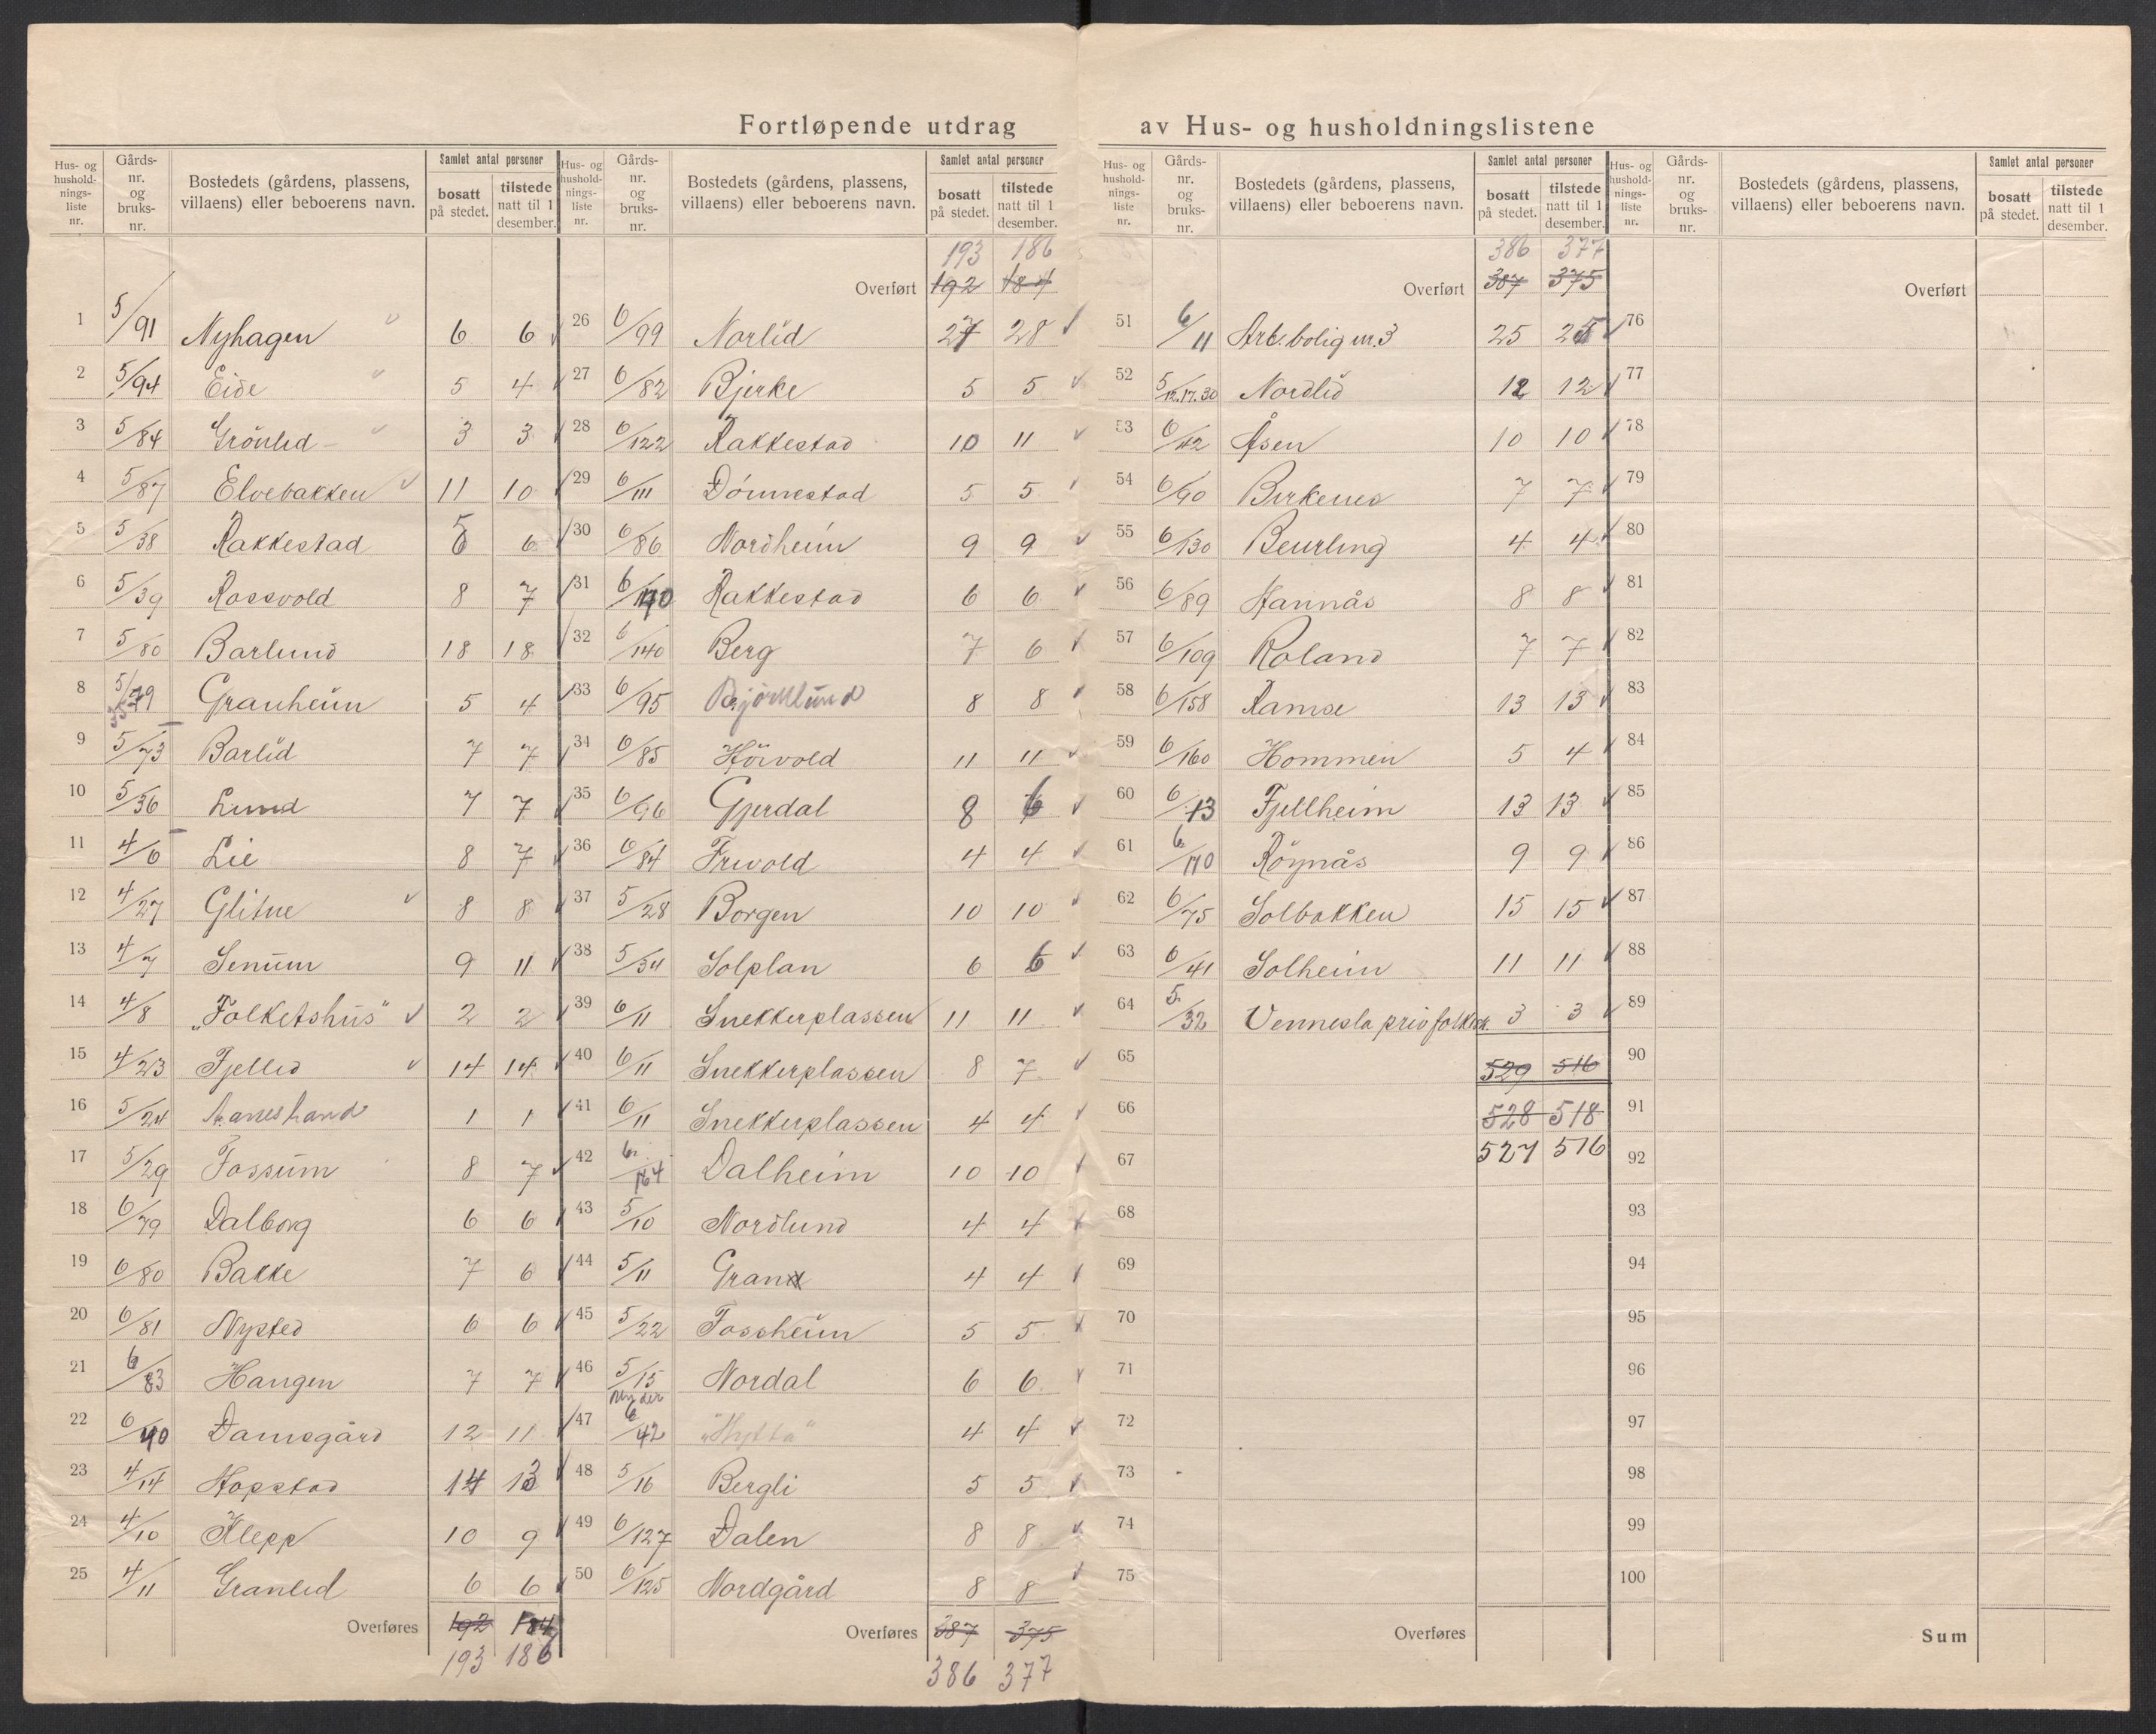 Fortløpende utdrag av Hus- og husholdningslistene
Hus- og husholdningsliste nr. | Gårds-nr. og bruks-nr. | Bostedets (gårdens, plassens, villaens) eller beboerens navn. | Samlet antal personer | bosatt på stedet. | tilstede natt til 1 desember.
1 5/91 Nyhagen 6 6
2 5/94 Eide 5 4
3 5/84 Grönlid 3 3
4 5/87 Elvebakken 11 10
5 5/38 Rakkestad 5 6
6 5/39 Rossvold 8 7
7 5/80 Barlund 18 18
8 5/79 Granheim 5 4
9 5/73 Barlid 7 7
10 5/36 Lund 7 7
11 4/6 Lie 8 7
12 4/27 Glitne 8 8
13 4/7 Senum 9 11
14 4/8 „Folketshus" 2 2
15 4/23 Fjellid 14 14
16 5/24 1 1
17 5/29 Fossum 8 7
18 6/79 Dalborg 6 6
19 6/80 Bakke 7 6
20 6/81 Nysted 6 6
21 6/83 Haugen 7 7
22 6/40 Damsgård 12 11
23 4/14 Hopstad 14 13
24 4/10 Klepp 10 9
25 4/11 Granlid 6 6
Overføres 192 184
193 186
Hus- og husholdningsliste nr. | Gårds-nr. og bruks-nr. | Bostedets (gårdens, plassens, villaens) eller beboerens navn. | Samlet antal personer | bosatt på stedet. | tilstede natt til 1 desember.
193 186
Overført 192 184
26 6/99 Norlid 27 28
27 6/82 Bjerke 5 5
28 6/122 Rakkestad 10 11
29 6/111 Dønnestad 5 5
30 6/86 Nordheim 9 9
31 Rakkestad 6 6
32 6/140 Berg 7 6
33 6/95 Bjørklund 8 8
34 6/85 Hövold 11 11
35 6/96 Gjerdal 8 6
36 6/84 Frivold 4 4
37 5/28 Borgen 10 10
38 5/34 Solplan 6 6
39 6/11 Snekkerplassen 11 11
40 6/11 Snekkerplassen 8 7
41 6/11 Snekkerplassen 4 4
42 6/164 Dalheim 10 10
43 5/10 Nordlund 4 4
44 5/11 Gran 4 4
45 5/22 Fossheim 5 5
46 5/15 Nordal 6 6
47 6/42 „Hytta" 4 4
48 5/16 Bergli 5 5
49 6/127 Dalen 8 8
50 6/125 Nordgård 8 8
Overføres 387 375
386 377
Hus- og husholdningsliste nr. | Gårds-nr. og bruks-nr. | Bostedets (gårdens, plassens, villaens) eller beboerens navn. | Samlet antal personer | bosatt på stedet. | tilstede natt til 1 desember.
386 377
Overført 387 375
51 6/11 Arb.bolig nr. 3 25 25
52 5/12.17.30 Nordlid 12 12
53 6/42 Åsen 10 10
54 6/90 Birkenes 7 7
55 6/130 Beurling 4 4
56 6/89 Hannås 8 8
57 6/109 Roland 7 7
58 6/158 Ramse 13 13
59 6/160 Hommen 5 4
60 6/13 Fjellheim 13 13
61 6/170 Röynås 9 9
62 6/75 Solbakken 15 15
63 6/41 Solheim 11 11
64 5/32 Vennesla priv folkesk. 3 3
65 529 516
66 528 518
67 527 516
68
69
70
71
72
73
74
75
Overføres
Hus- og husholdningsliste nr. | Gårds-nr. og bruks-nr. | Bostedets (gårdens, plassens, villaens) eller beboerens navn. | Samlet antal personer | bosatt på stedet. | tilstede natt til 1 desember.
Overført
76
77
78
79
80
81
82
83
84
85
86
87
88
89
90
91
92
93
94
95
96
97
98
99
100
Sum